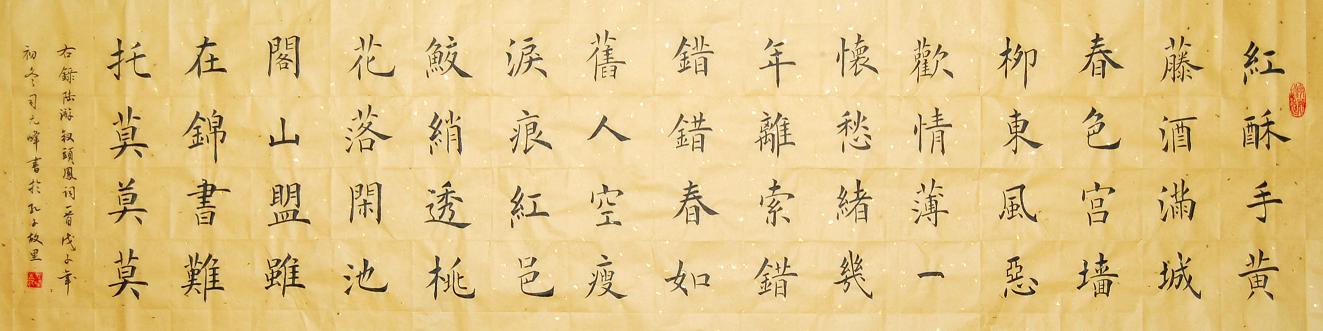 紅酥手黄
藤酒滿城
春色宫墻
柳東風惡
歡情薄一
懷愁緒幾
年離索錯
錯錯春如
舊人空瘦
淚痕紅邑
鮫綃透桃
花落閑池
閣山盟雖
在錦書難
托莫莫莫
右錄陆游釵頭鳳詞一首戊子年
初冬司元峰書於孔子故里